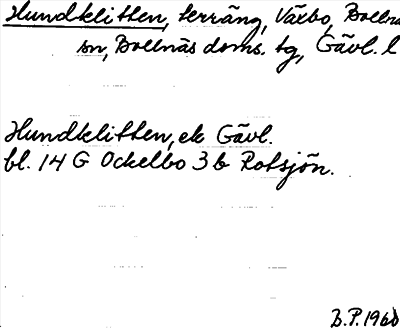 Hundklitten, terräng, Växbo, Bollnä
sn, Bollnäs doms. tg, Gävl. l
Hundklitten, ek Gävl.
bl. 14 G Ockelbo 3 b Rotsjön.
B.P. 1960